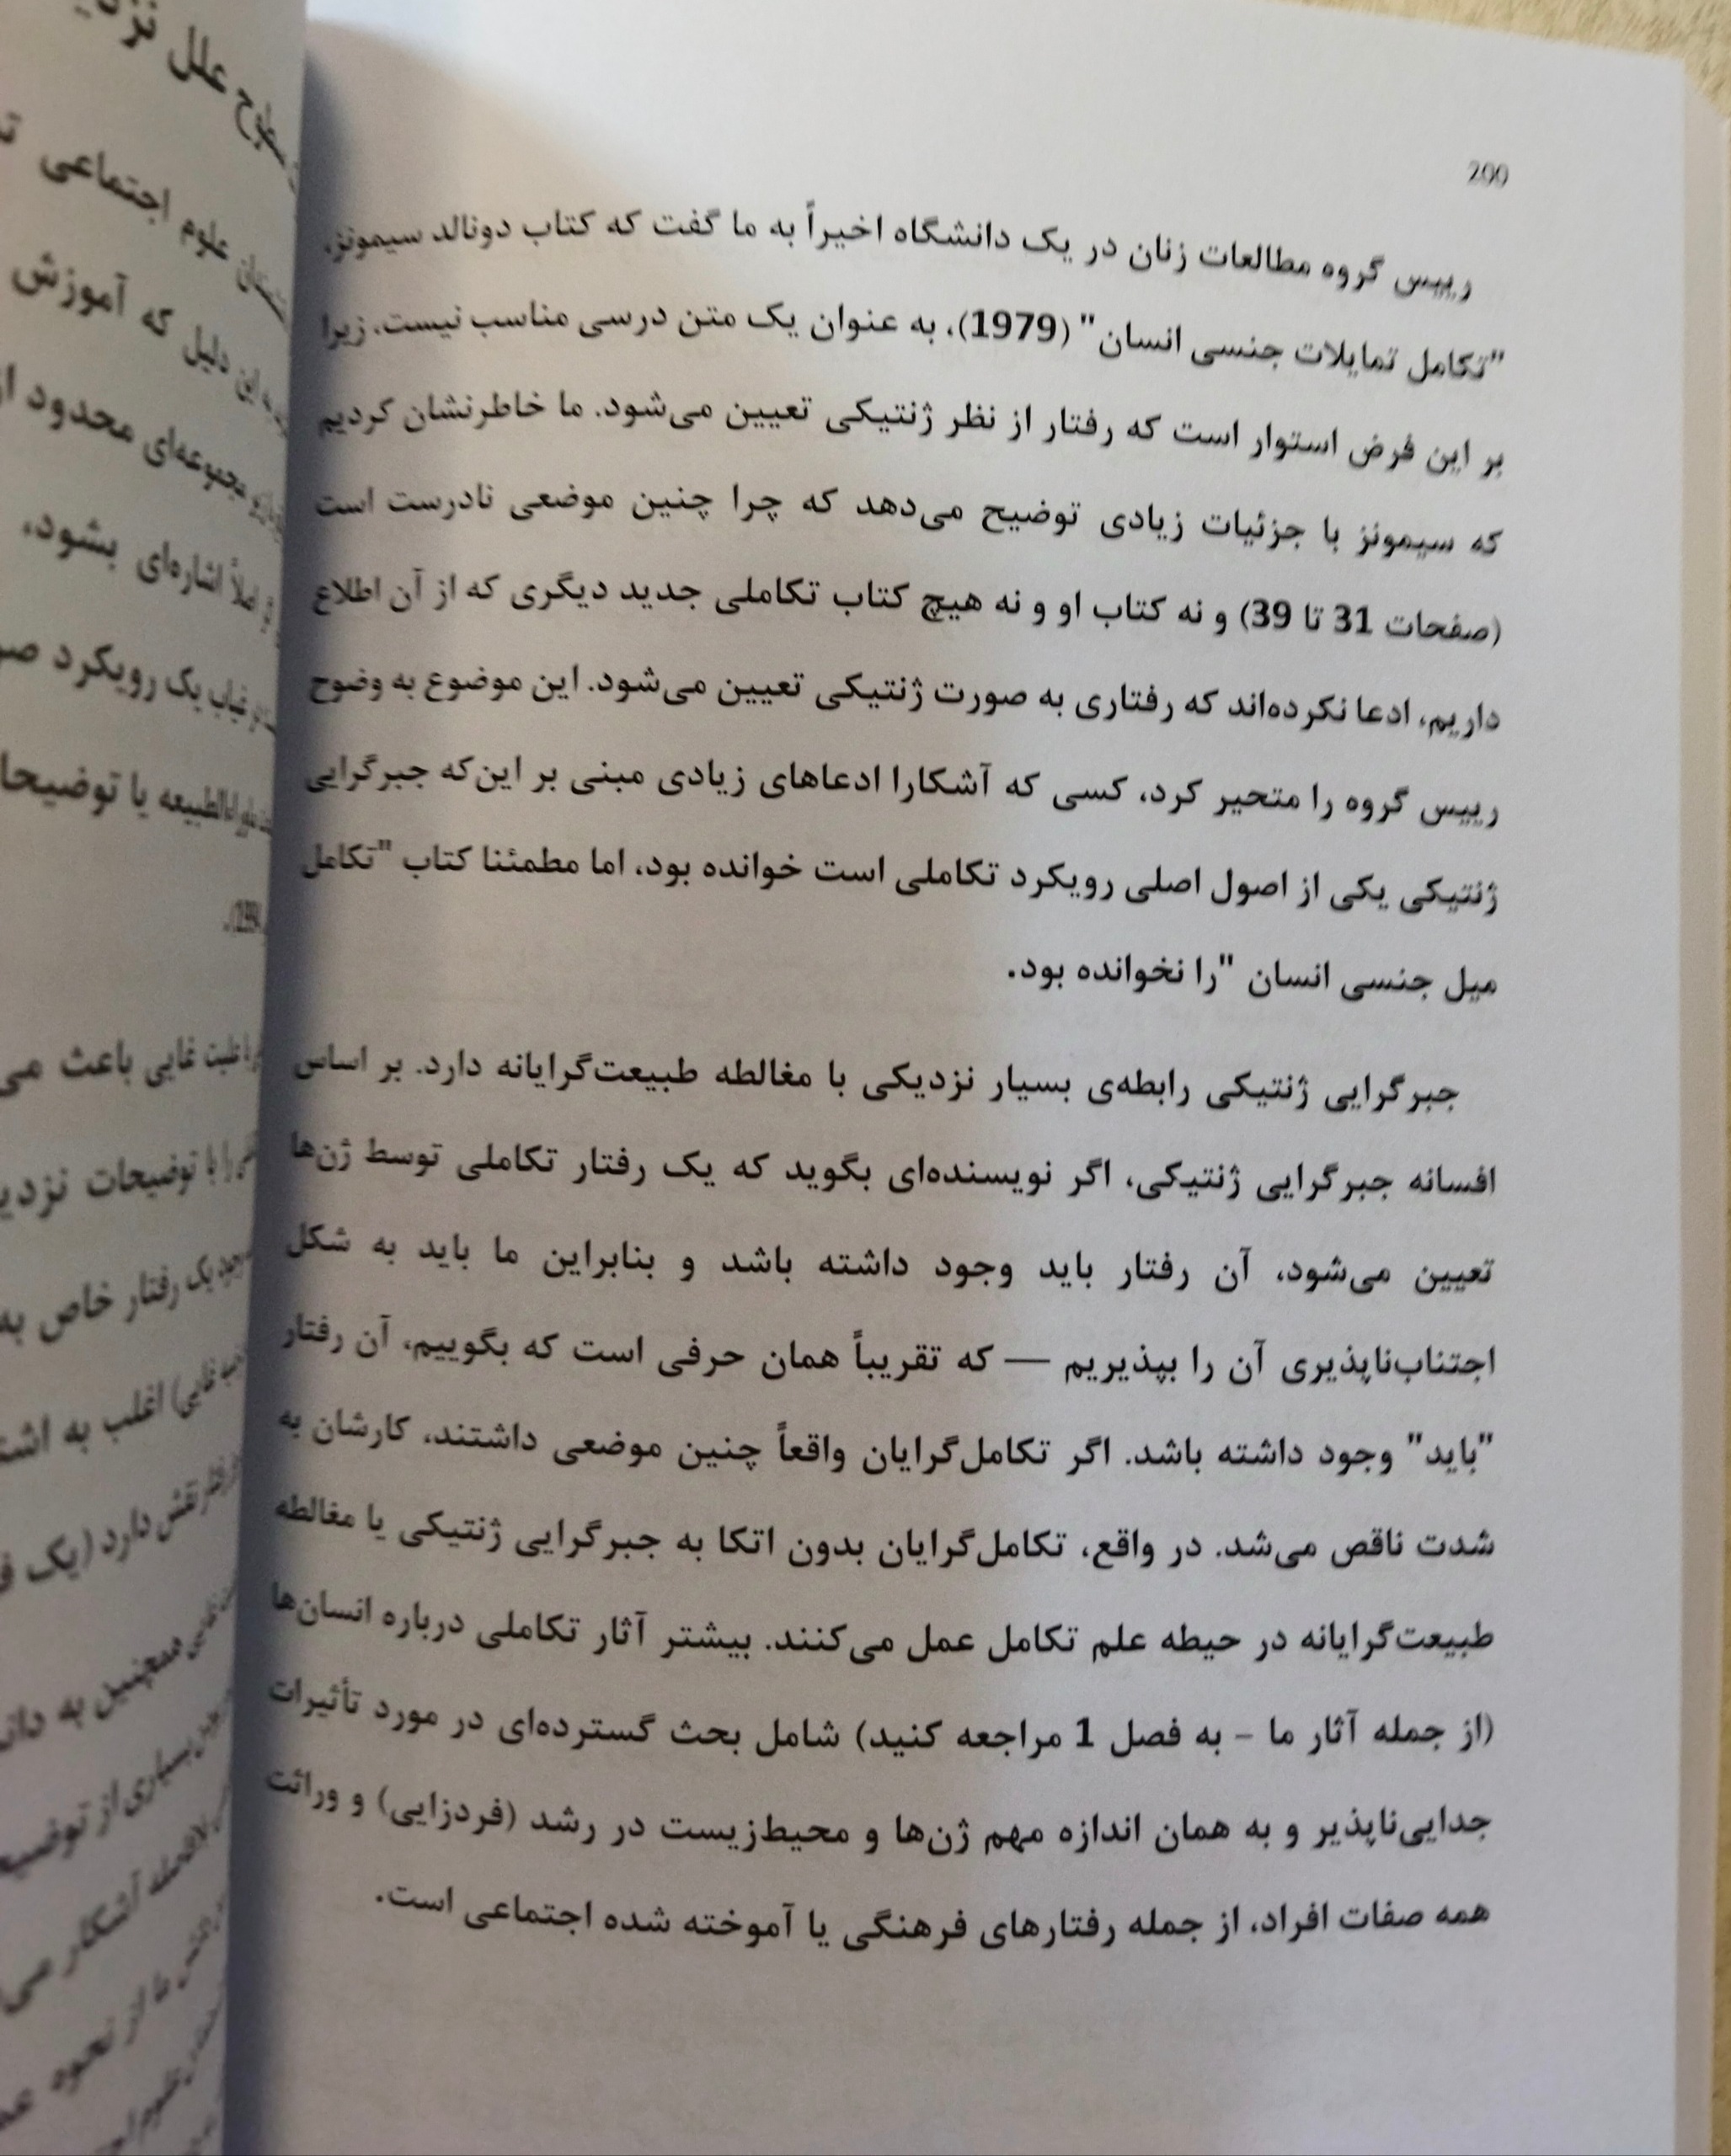 200
رییس گروه مطالعات زنان در یک دانشگاه اخیراً به ما گفت که کتاب دونالد سیمونز،
"تکامل تمایلات جنسی انسان" (1979)، به عنوان یک متن درسی مناسب نیست، زیرا
بر این فرض استوار است که رفتار از نظر ژنتیکی تعیین می‌شود. ما خاطرنشان کردیم
که سیمونز با جزئیات زیادی توضیح می‌دهد که چرا چنین موضعی نادرست است
(صفحات 31 تا 39) و نه کتاب او و نه هیچ کتاب تکاملی جدید دیگری که از آن اطلاع
داریم، ادعا نکرده‌اند که رفتاری به صورت ژنتیکی تعیین می‌شود. این موضوع به وضوح
رییس گروه را متحیر کرد، کسی که آشکارا ادعاهای زیادی مبنی بر این‌که جبرگرایی
ژنتیکی یکی از اصول اصلی رویکرد تکاملی است خوانده بود، اما مطمئنا کتاب "تکامل
میل جنسی انسان "را نخوانده بود.
جبرگرایی ژنتیکی رابطه‌ی بسیار نزدیکی با مغالطه طبیعت‌گرایانه دارد. بر اساس
افسانه جبرگرایی ژنتیکی، اگر نویسنده‌ای بگوید که یک رفتار تکاملی توسط ژن‌ها
تعیین می‌شود، آن رفتار باید وجود داشته باشد و بنابراین ما باید به شکل
اجتناب‌ناپذیری آن را بپذیریم — که تقریباً همان حرفی است که بگوییم، آن رفتار
"باید" وجود داشته باشد. اگر تکامل‌گرایان واقعاً چنین موضعی داشتند، کارشان به
شدت ناقص می‌شد. در واقع، تکامل‌گرایان بدون اتکا به جبرگرایی ژنتیکی یا مغالطه
طبیعت‌گرایانه در حیطه علم تکامل عمل می‌کنند. بیشتر آثار تکاملی درباره انسان‌ها
(از جمله آثار ما - به فصل 1 مراجعه کنید) شامل بحث گسترده‌ای در مورد تأثیرات
جدایی‌ناپذیر و به همان اندازه مهم ژن‌ها و محیط‌زیست در رشد (فردزایی) و وراثت
همه صفات افراد، از جمله رفتارهای فرهنگی یا آموخته شده اجتماعی است.
علوم اجتماعی
این دلیل که آموزش
مجموعه‌ای محدود
اشاره‌ای بشود.
غیاب یک رویکرد
یا توضیحا
غایی باعث می
را با توضیحات
یک رفتار خاص به
غایی) اغلب به
نقش دارد (یک
همچنین به
بسیاری از
آشکار می
ما از نحوه